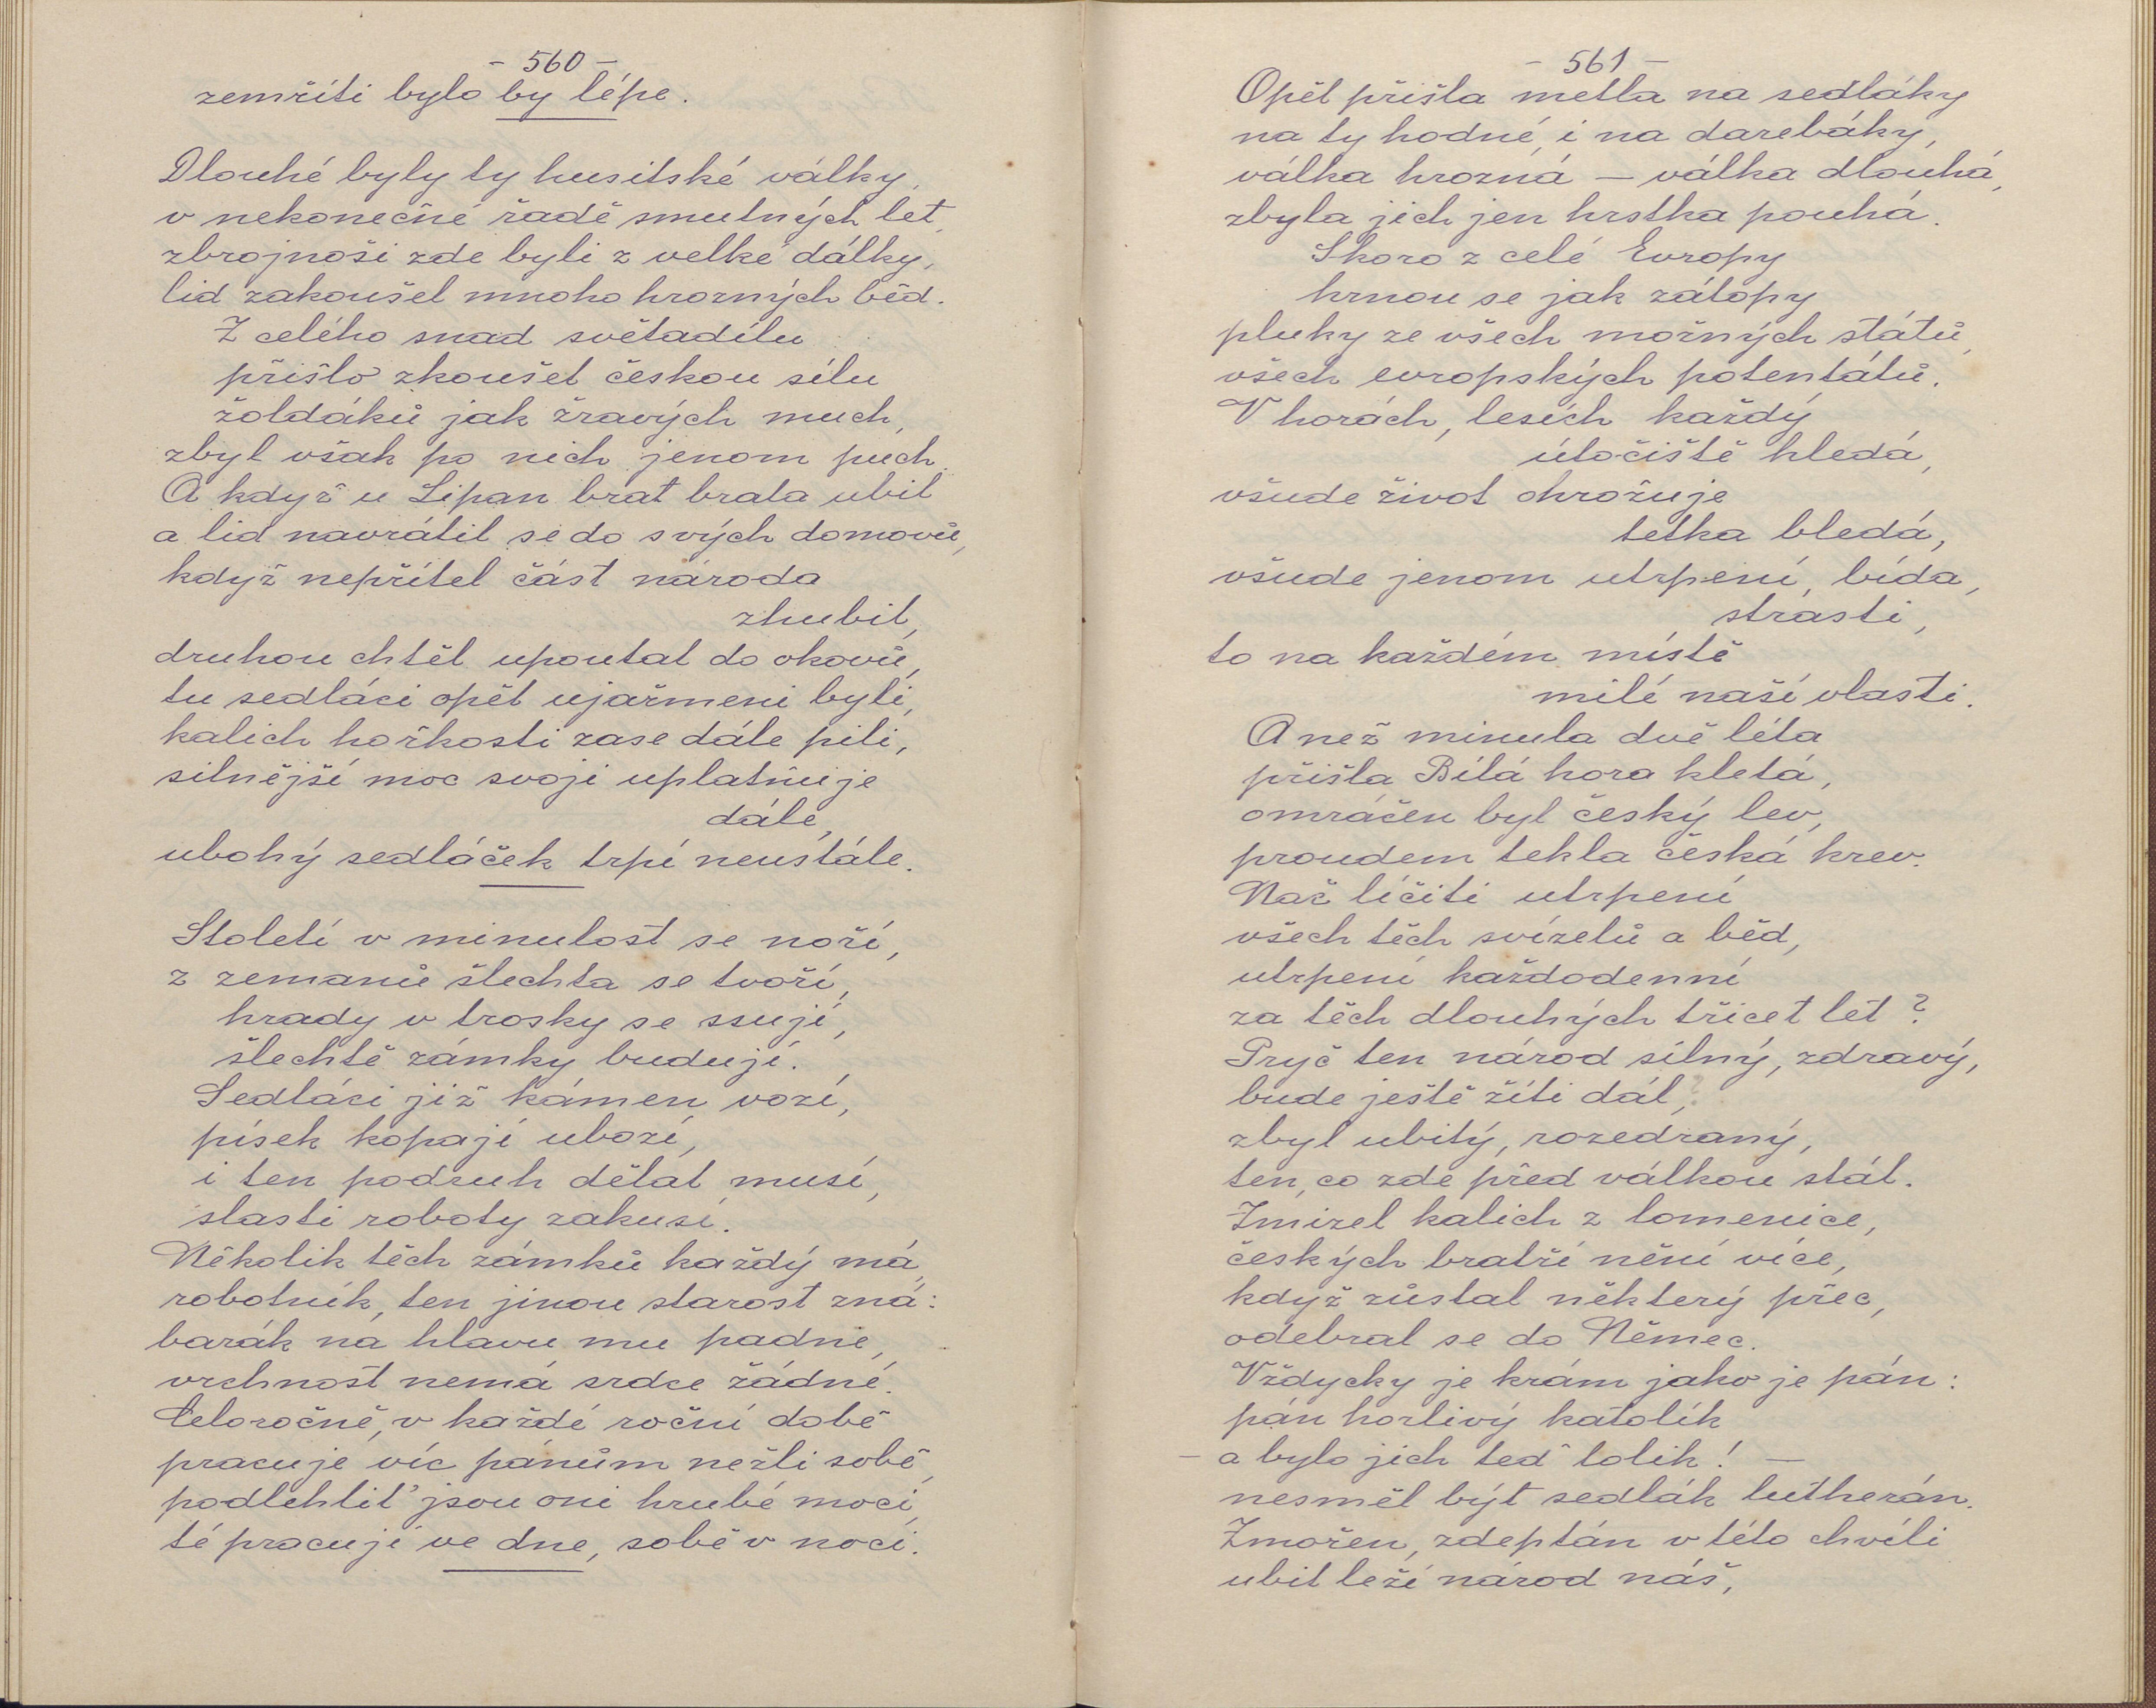 - 560 -
zemříti bylo by lépe.
Dlouhé byly ty husitské války,
v nekonečné řadě smutných let,
zbrojnoši zde byli z velké dálky,
lid zakoušel mnoho hrozných běd.
Z celého snad světadílu
přišlo zkoušet českou sílu
žoldáků jak žravých much,
zbyl však po nich jenom puch.
A když u Lipan brat brata ubil
a lid navrátil se do svých domovů,
když nepřítel část národa
zhubil,
druhou chtěl upoutat do okovů,
tu sedláci opět ujařmeni byli,
kalich hořkosti zase dále pili,
silnější moc svoji uplatňuje
dále,
ubohý sedláček trpí neustále.
Století v minulost se noří,
z zemanů šlechta se tvoří,
hrady v trosky se ssují,
šlechtě zámky budují.
Sedláci již kámen vozí,
písek kopají ubozí,
i ten podruh dělat musí,
slasti roboty zakusí.
Několik těch zámků každý má,
robotník, ten jinou starost zná:
barák na hlavu mu padne,
vrchnost nemá srdce žádné.
Celoročně, v každé roční době
pracuje víc pánům nežli sobě,
podlehliť jsou oni hrubé moci,
té pracují ve dne, sobě v noci.
- 561 -
Opět přišla metla na sedláky
na ty hodné, i na darebáky,
válka hrozná – válka dlouhá,
zbyla jich jen hrstka pouhá.
Skoro z celé Evropy
hrnou se jak zátopy
pluky ze všech možných států,
všech evropských potentátů.
V horách, lesích každý
útočiště hledá,
všude život ohrožuje
tetka bledá,
všude jenom utrpení, bída,
strasti,
to na každém místě
milé naší vlasti.
A než minula dvě léta
přišla Bílá hora kletá,
omráčen byl český lev,
proudem tekla česká krev.
Nač líčiti utrpení
všech těch svízelů a běd,
utrpení každodenní
za těch dlouhých třicet let?
Pryč ten národ silný, zdravý,
bude ještě žíti dál,
zbyl ubitý, rozedraný,
ten, co zde před válkou stál.
Zmizel kalich z lomenice,
českých bratří není více,
když zůstal některý přec,
odebral se do Němec.
Vždycky je krám jako je pán:
pán horlivý katolík
– a bylo jich teď tolik! –
nesměl být sedlák lutherán.
Zmořen, zdeptán v této chvíli
ubit leží národ náš,